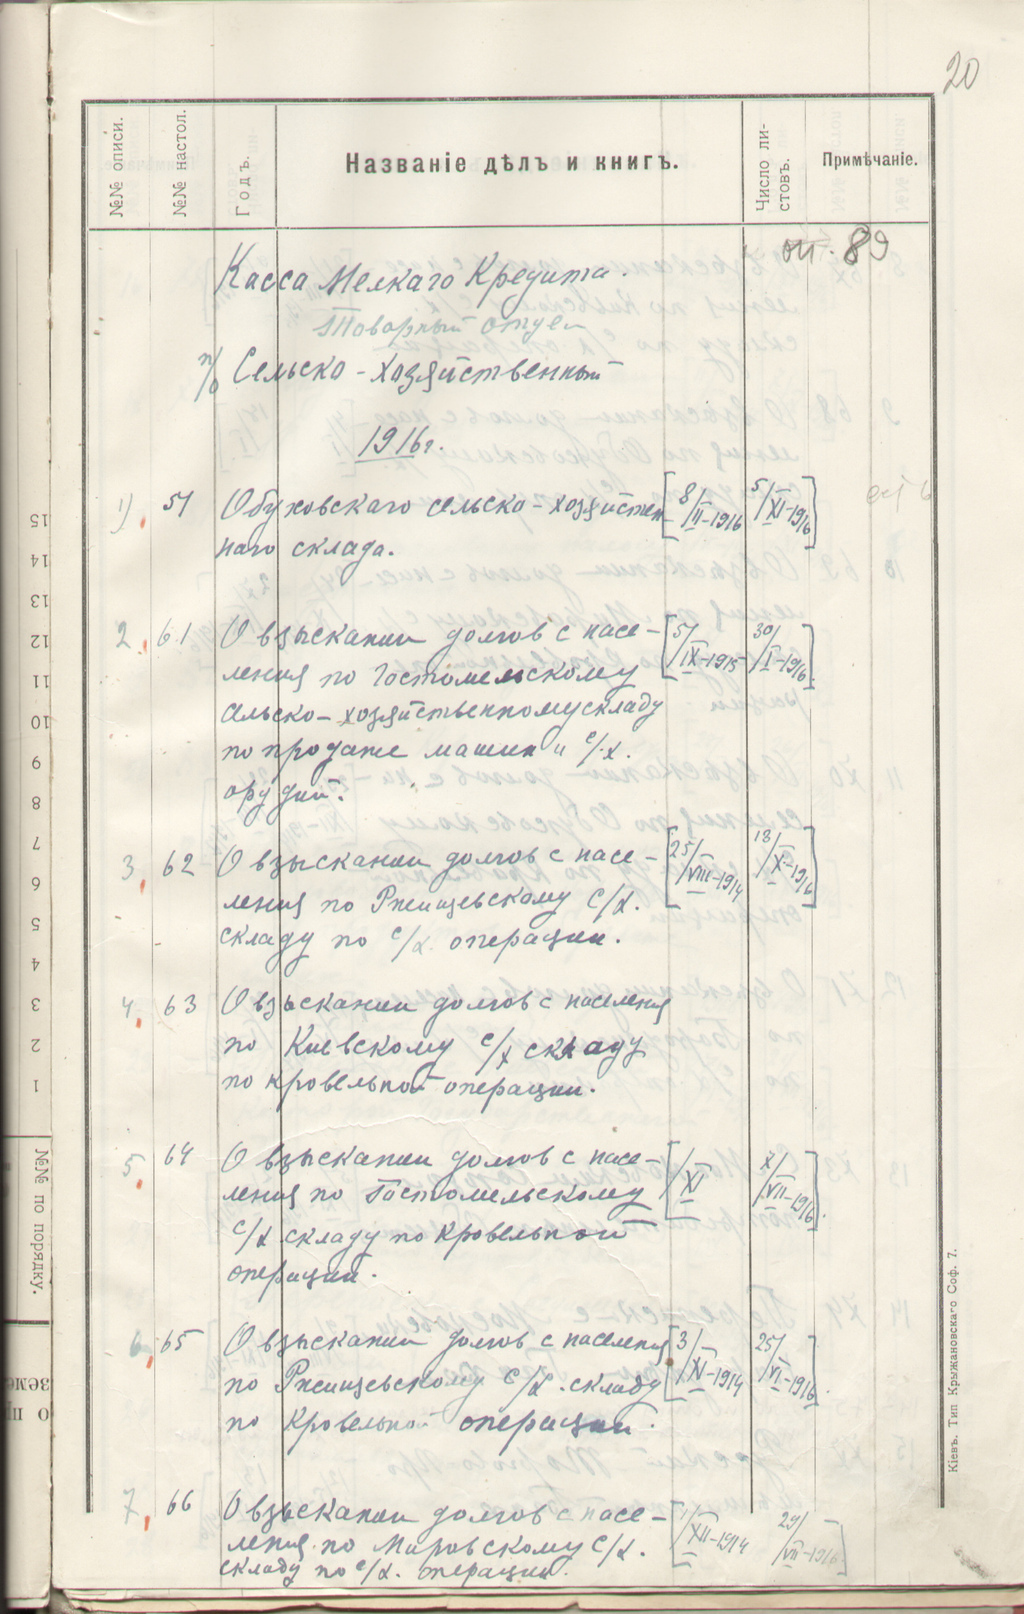 20
№№ описи.
№№ настол.
Годъ.
Названіе дѣлъ и книгъ.
Число ли-
стовъ.
Примѣчаніе.
оп. 89
Касса Мелкаго Кредита.
Товарный отдел
п/о Сельско-хозяйственный
1916 г.
1) 51 Обуховскаго сельско-хозяйствен [8/II-1916 5/XI-1916]
наго склада.
2. 61 О взыскании долгов с насе- [5/IX-1915- 30/I-1916]
ления по Гостомельскому
сельско-хозяйственному складу
по продаже машин и с/х.
орудий.
3. 62 О взыскании долгов с насе- [25/VIII-1914 18/X-1916]
ления по Ржищевскому с/х.
складу по с/х. операции.
4. 63 О взыскании долгов с населения
по Киевскому с/х складу
по кровельной операции.
5. 64 О взыскании долгов с насе- [/XI 7/VII-1916].
ления по Гостомельскому
с/х складу по кровельной
операции.
6. 65 О взыскании долгов с населения [3/XI-1914 25/VI-1916]
по Ржищевскому с/х. складу
по кровельной операции.
7. 66 О взыскании долгов с насе- [1/XII-1914 29/VII-1916]
ления по Мировскому с/х.
складу по с/х. операции.
15
14
13
12
11
10
9
8
7
6
5
4
3
2
1
№№ по порядку.
Кіевъ. Тип Крыжановскаго Соф. 7.